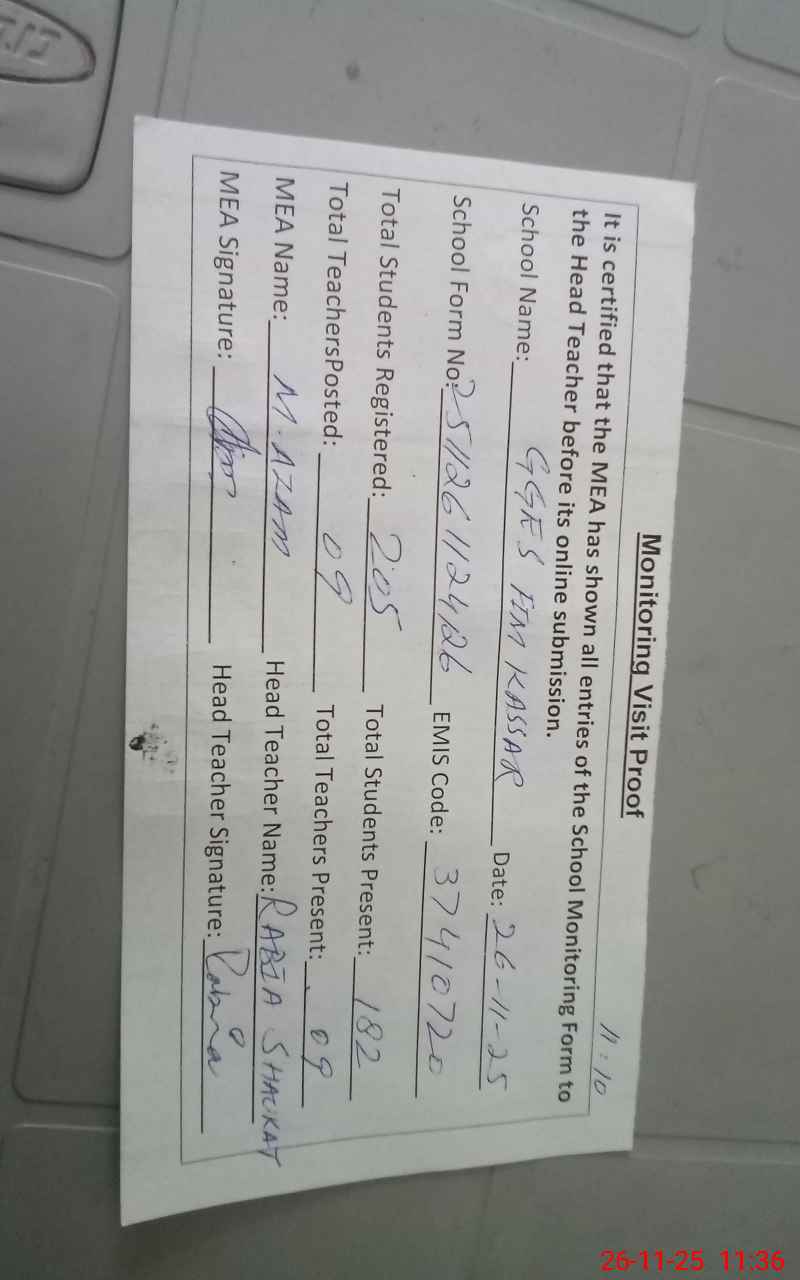 Monitoring Visit Proof
11:10
It is certified that the MEA has shown all entries of the School Monitoring Form to
the Head Teacher before its online submission.
School Name: GGES FIM KASSAR Date: 26-11-25
School Form No: 251126112426 EMIS Code: 37410720
Total Students Registered: 205 Total Students Present: 182
Total TeachersPosted: 09 Total Teachers Present: 09
MEA Name: M. AZAM Head Teacher Name: RABIA SHAUKAT
MEA Signature: Head Teacher Signature: Rabia
26-11-25 11:36